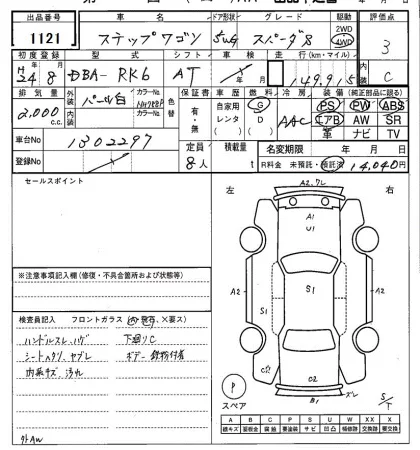 出品番号 車名 ドア形状 グレード 駆動 評価点
1121 ステップワゴン 5WG スパーダS 2WD 4WD 3
初度登録 型式 シフト 車検 走行(km・マイル) 内装
H24年8月 DBA-RK6 AT 年 月 149,915 C
排気量 外装 カラーNo 色替 車歴 燃料 冷房 装備(純正部品に限る)
2,000 c.c. パール白 NH788P 有・無 自家用 レンタ G D AAC PS PW ABS
エアB AW SR
革 ナビ TV
内装 カラーNo
車台No 1302297
定員 積載量 名変期限 年 月 日
登録No 8人 t R料金 未預託・預託済 14,040円
セールスポイント
左 右
A2,ワレ
A1
U1
A2 S1 S1 A2
C2
B1 ズレ
※注意事項記入欄(修復・不具合箇所および状態等)
検査員記入 フロントガラス(A,飛石、×要ス)
ハンドルスレ、ハゲ 下廻りC
シートヘタリ、ヤブレ ボデー鉄粉付着
内装キズ汚れ
外AW
P
スペア
S/T
A B C P S U W XX X
線キズ 要板金 腐蝕 要塗装 サビ 凹凸 補修跡 交換済 要交換